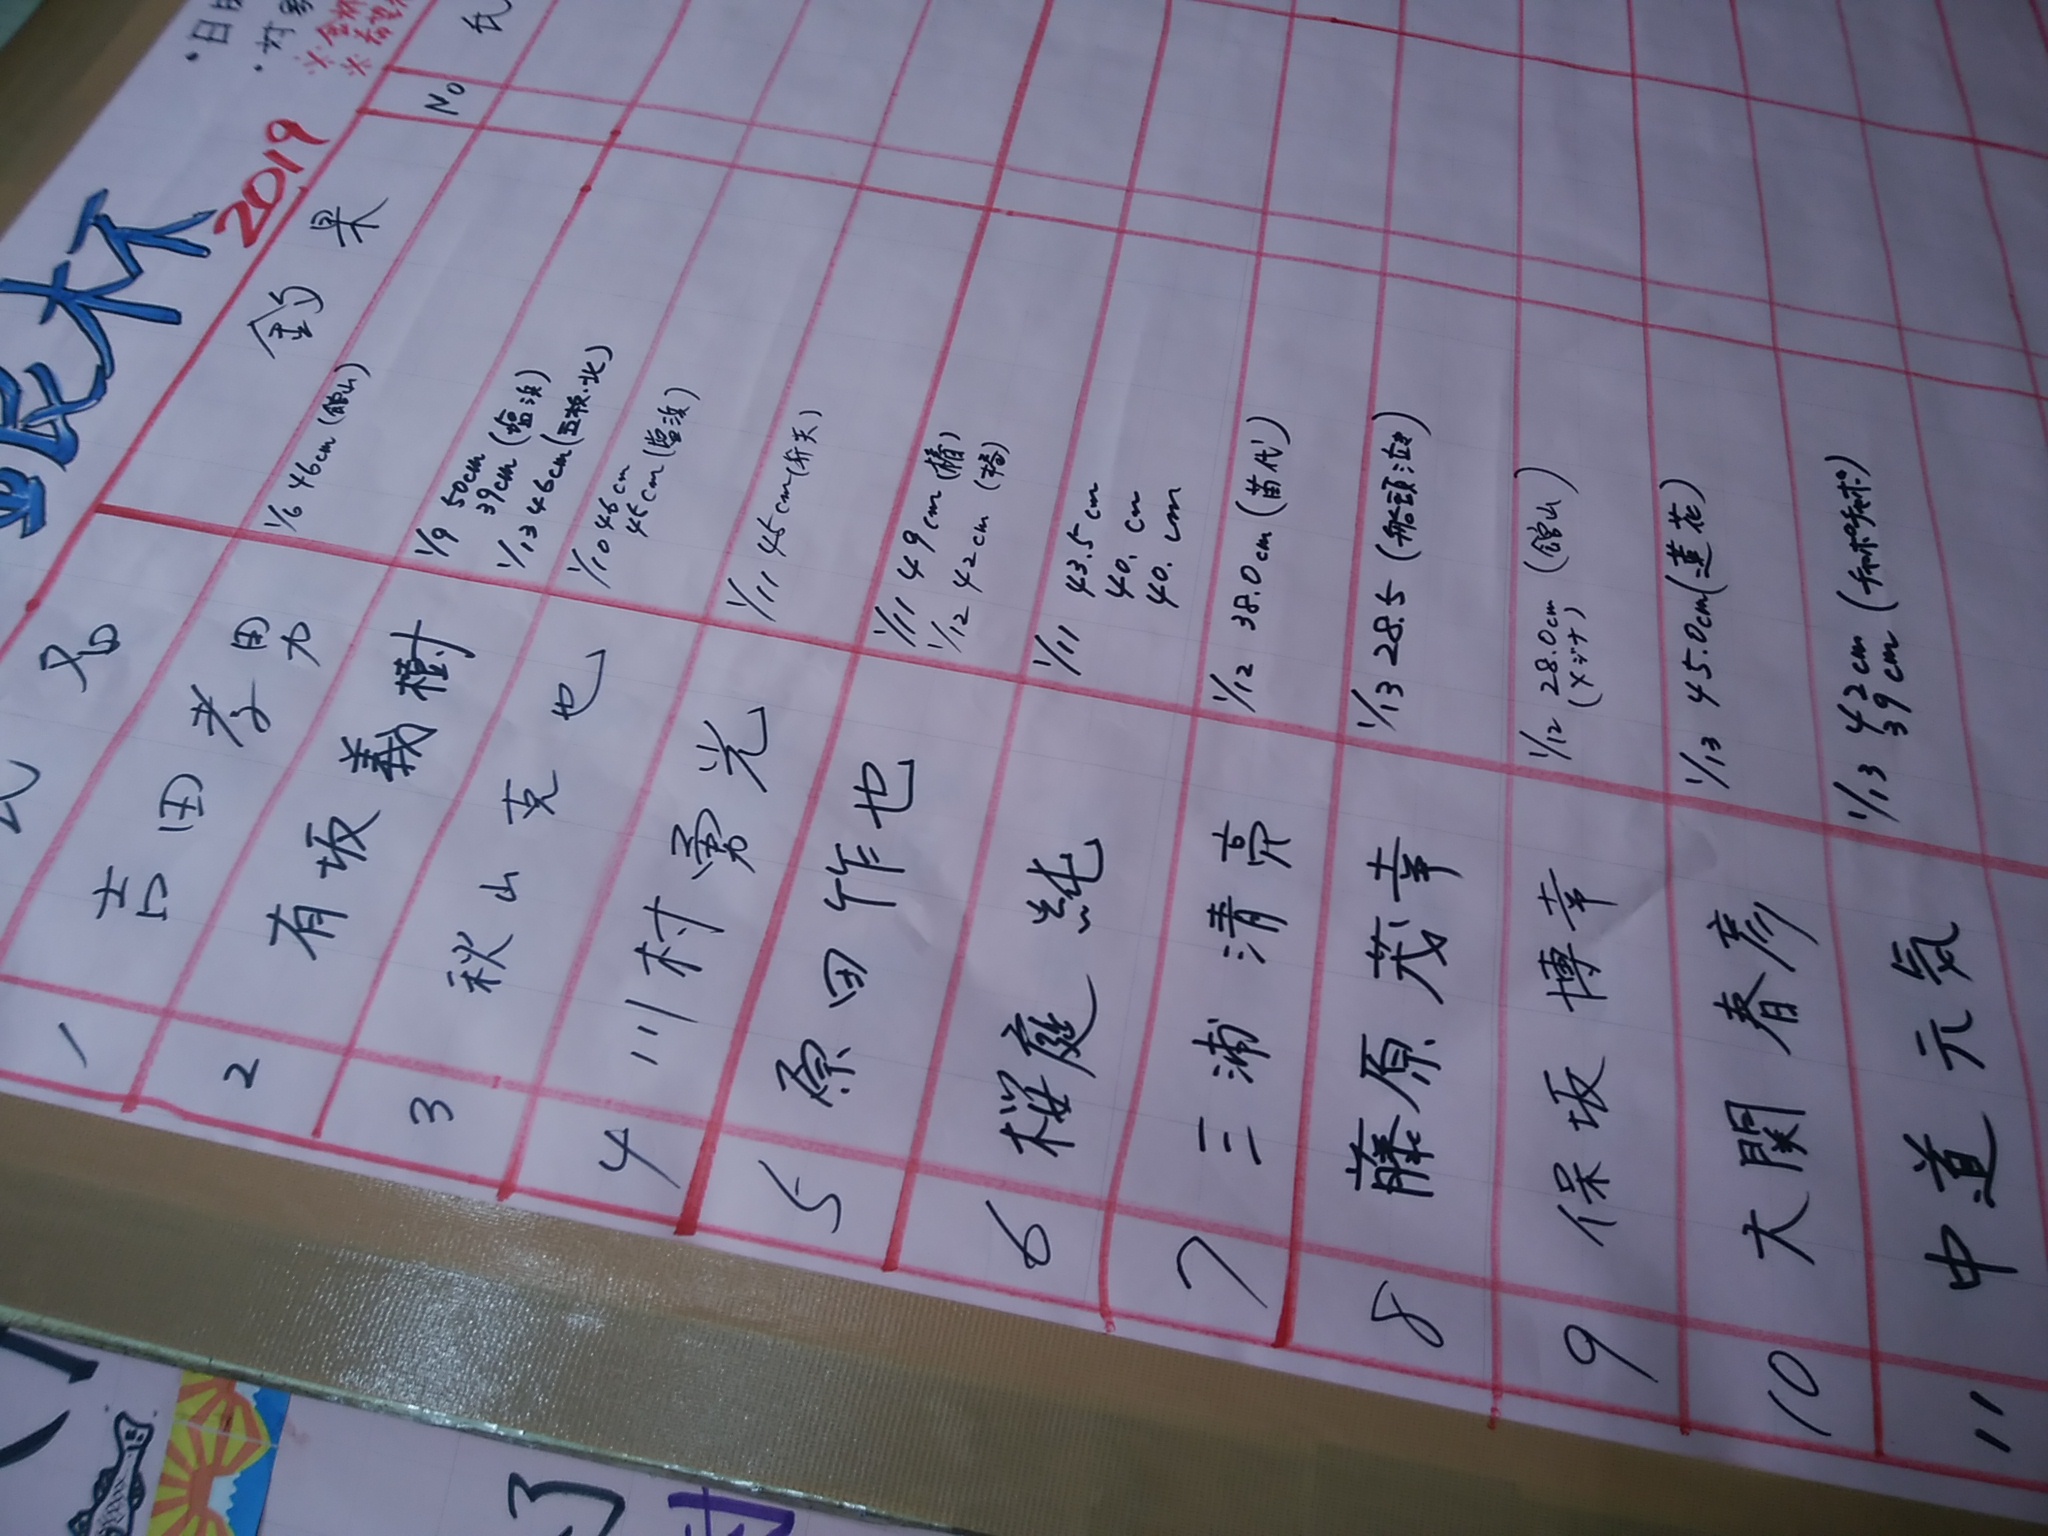 2019
No
氏名
釣果
No
氏
1
吉田孝男
1/6 46cm (館山)
2
有坂義樹
1/9 50cm
39cm (塩浜)
1/13 46cm
3
秋山克也
1/10 46cm
45cm
4
川村勇光
1/11 45cm (弁天)
5
原田作也
1/11 49cm
1/12 42cm
6
桜庭純
1/11 43.5cm
40.cm
40.cm
7
三浦清亮
1/12 38.0cm (苗代)
8
藤原茂幸
1/13 28.5 (船頭泣)
9
保坂博幸
1/12 28.0cm (館山)
(メジナ)
10
大関春彦
1/13 45.0cm (蓮花)
11
中道元気
1/13 42cm
39cm